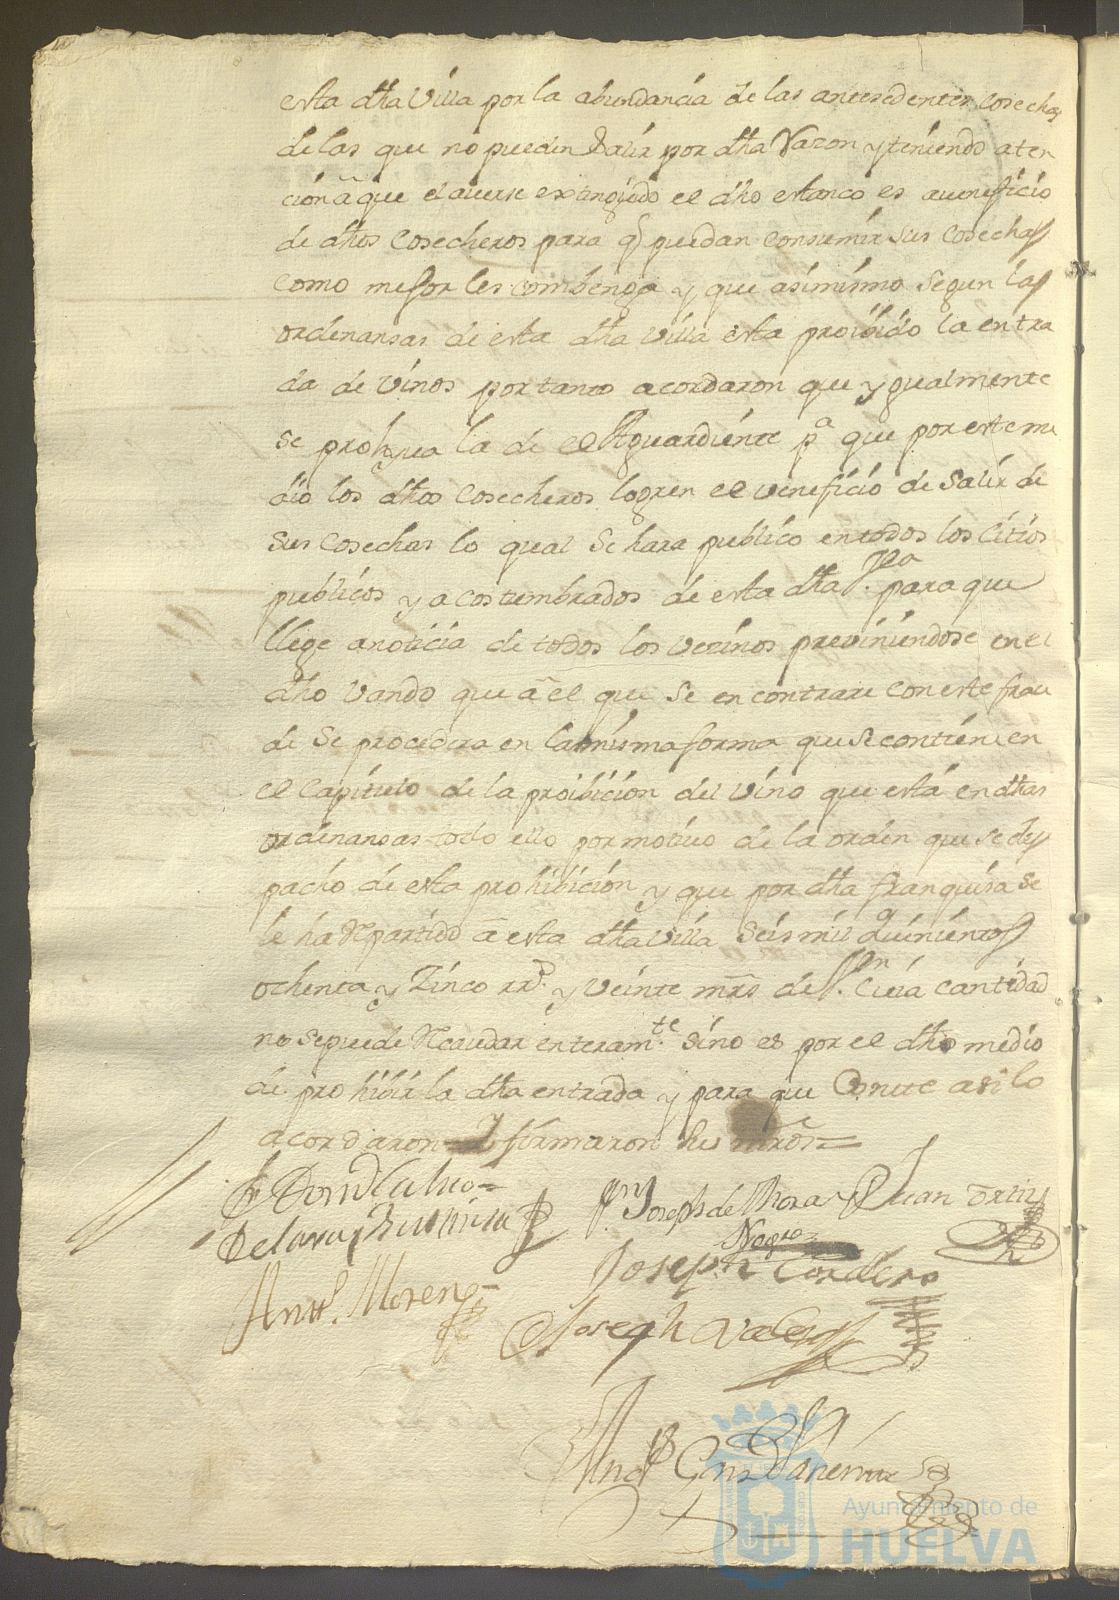 esta dha Villa por la abundancia de las antesedentes Cosechas
de las que no pueden Salir por dha Razon y teniendo aten
cion a que el averse extinguido el dho estanco es a veneficio
de dhos Cosecheros para q puedan Consumir sus Cosechas
Como mejor les combenga y que asimismo Segun las
ordenansas de esta dha Villa esta proibido la entra
da de Vinos por tanto acordaron que ygualmente
Se prohyva la de el Aguardiente pa que por este me
dio los dhos Cosecheros logren el veneficio de Salir de
Sus Cosechas lo qual Se hara publico en todos los Citios
publicos y acostumbrados de esta dha Va para que
llege a noticia de todos los Vesinos previniendose en el
dho Vando que a el que Se encontrare Con este frau
de Se procedera en la misma forma que se contiene en
el Capitulo de la proibicion del Vino que está en dhas
ordenansas todo ello por motivo de la orden que se des
pacho de esta prohibicion y que por dha franquisa se
le ha Repartido a esta dha Villa Seis mil quinientos
ochenta y Zinco rrs y veinte mrs de Vn Cuia cantidad
no se puede Recaudar enteramte sino es por el dho medio
de prohibir la dha entrada y para que Conste asi lo
acordaron y firmaron Sus mrds=
Joseph de Mora Juan Ortiz
Negro
Antto Moreno
Joseph Cordero
Joseph
Ayuntamiento de
HUELVA